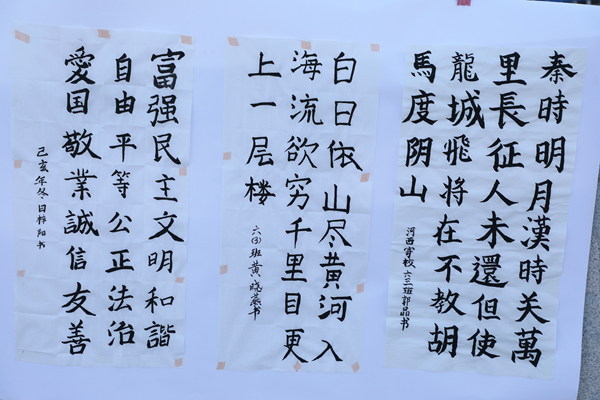 秦時明月漢時关萬
里長征人未還但使
龍城飛将在不教胡
馬度阴山
河西寄校六三班郭品书
白日依山尽黄河入
海流欲穷千里目更
上一层楼
六(3)班黄晓书
富强民主文明和諧
自由平等公正法治
愛国敬業誠信友善
己亥年冬田梓阳书